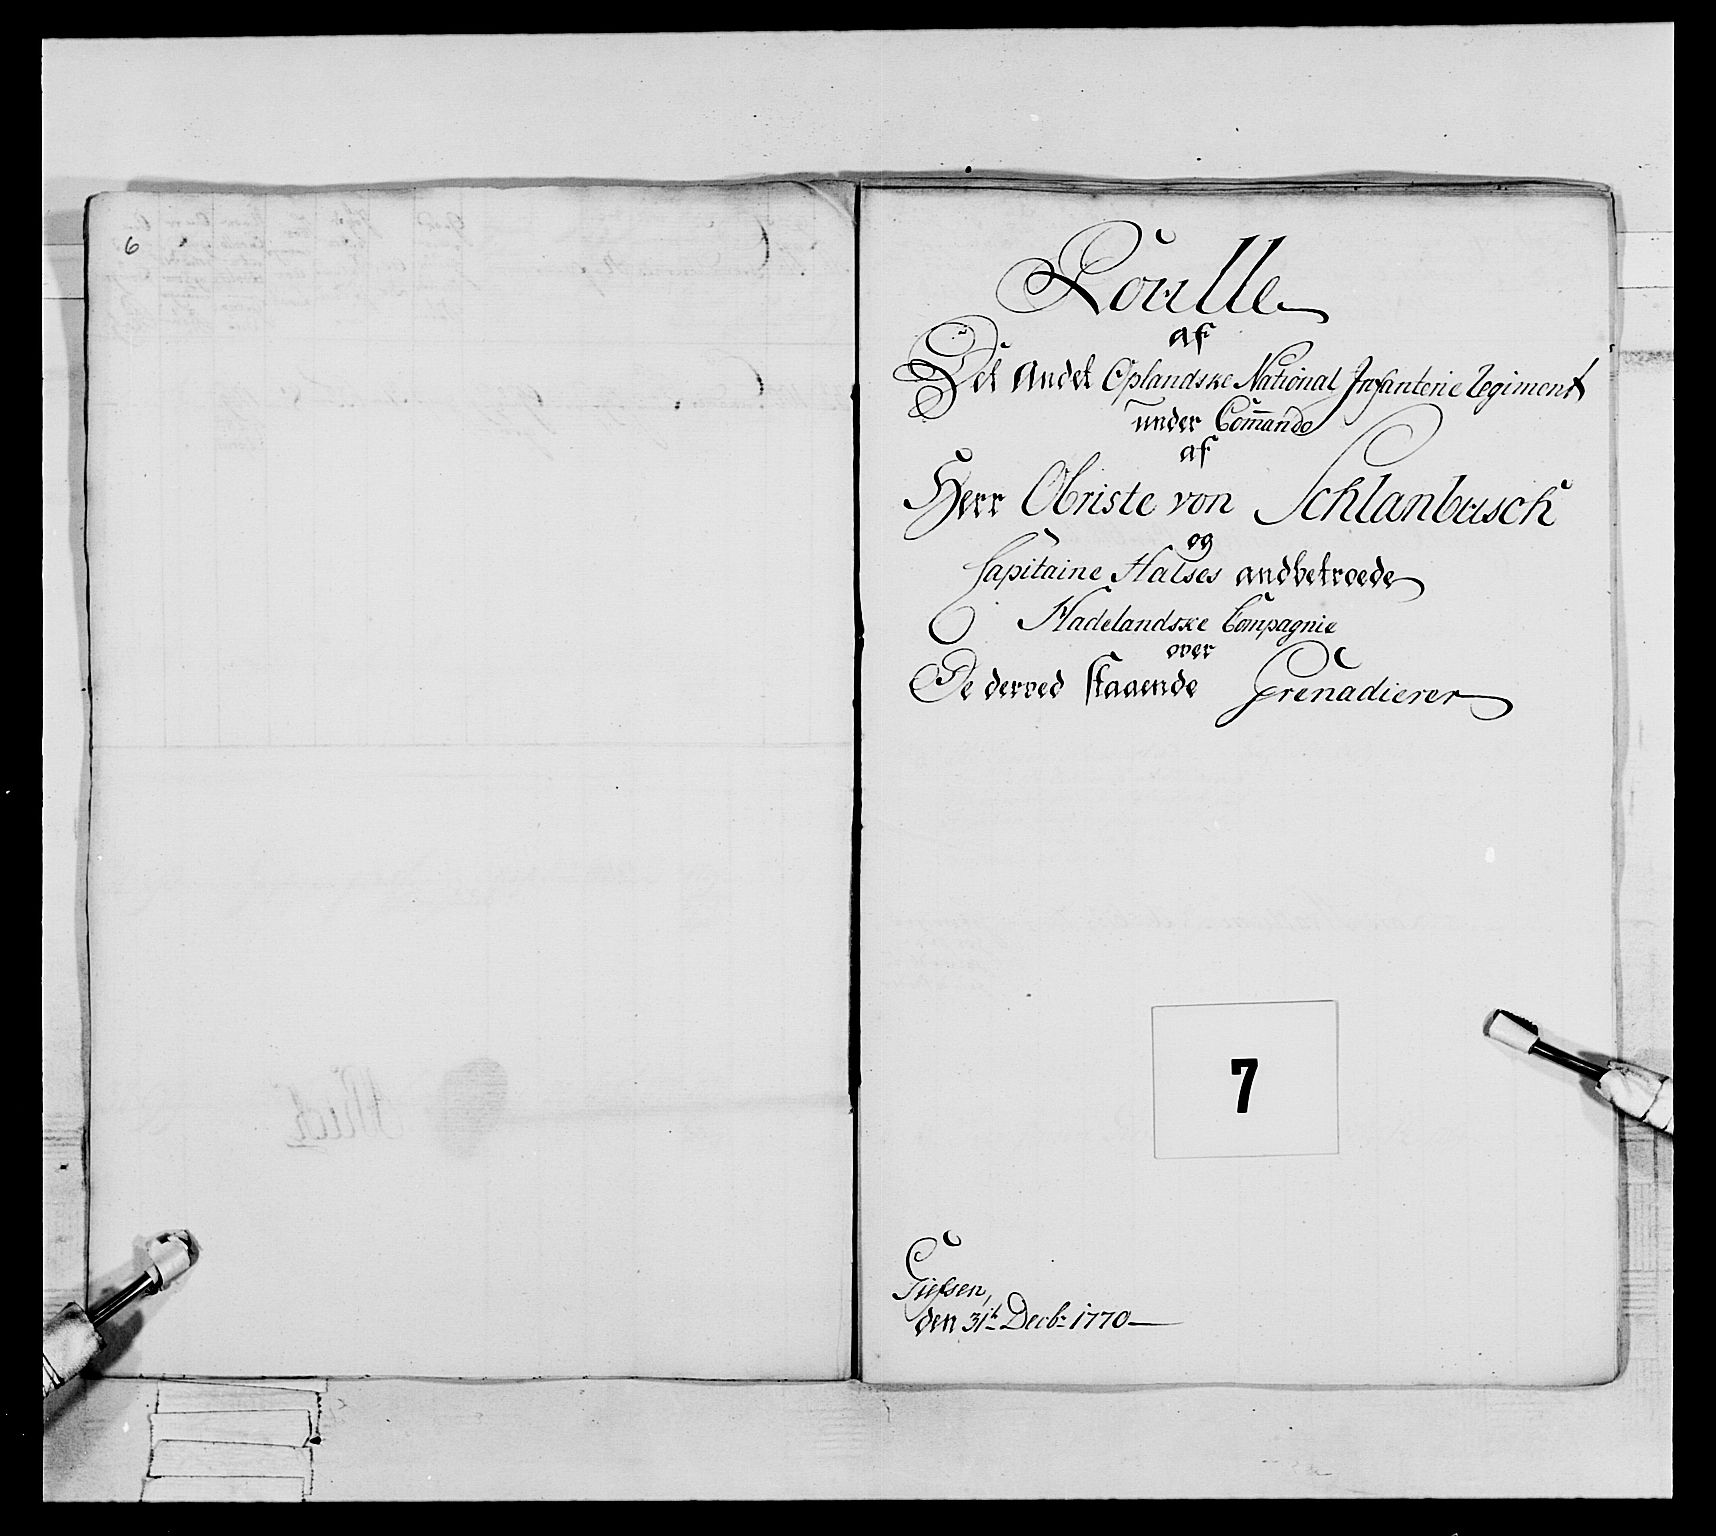 6
Roulle
af
Det andet Oplandske National Infanterie Regiment
under Com̅ando
af
Herr Obriste von Schlanbusch
og
Capitaine Halses andbetroede
Hadelandske Compagnie
over
De derved staaende Grenadierer
7
den 31t Decbr 1770